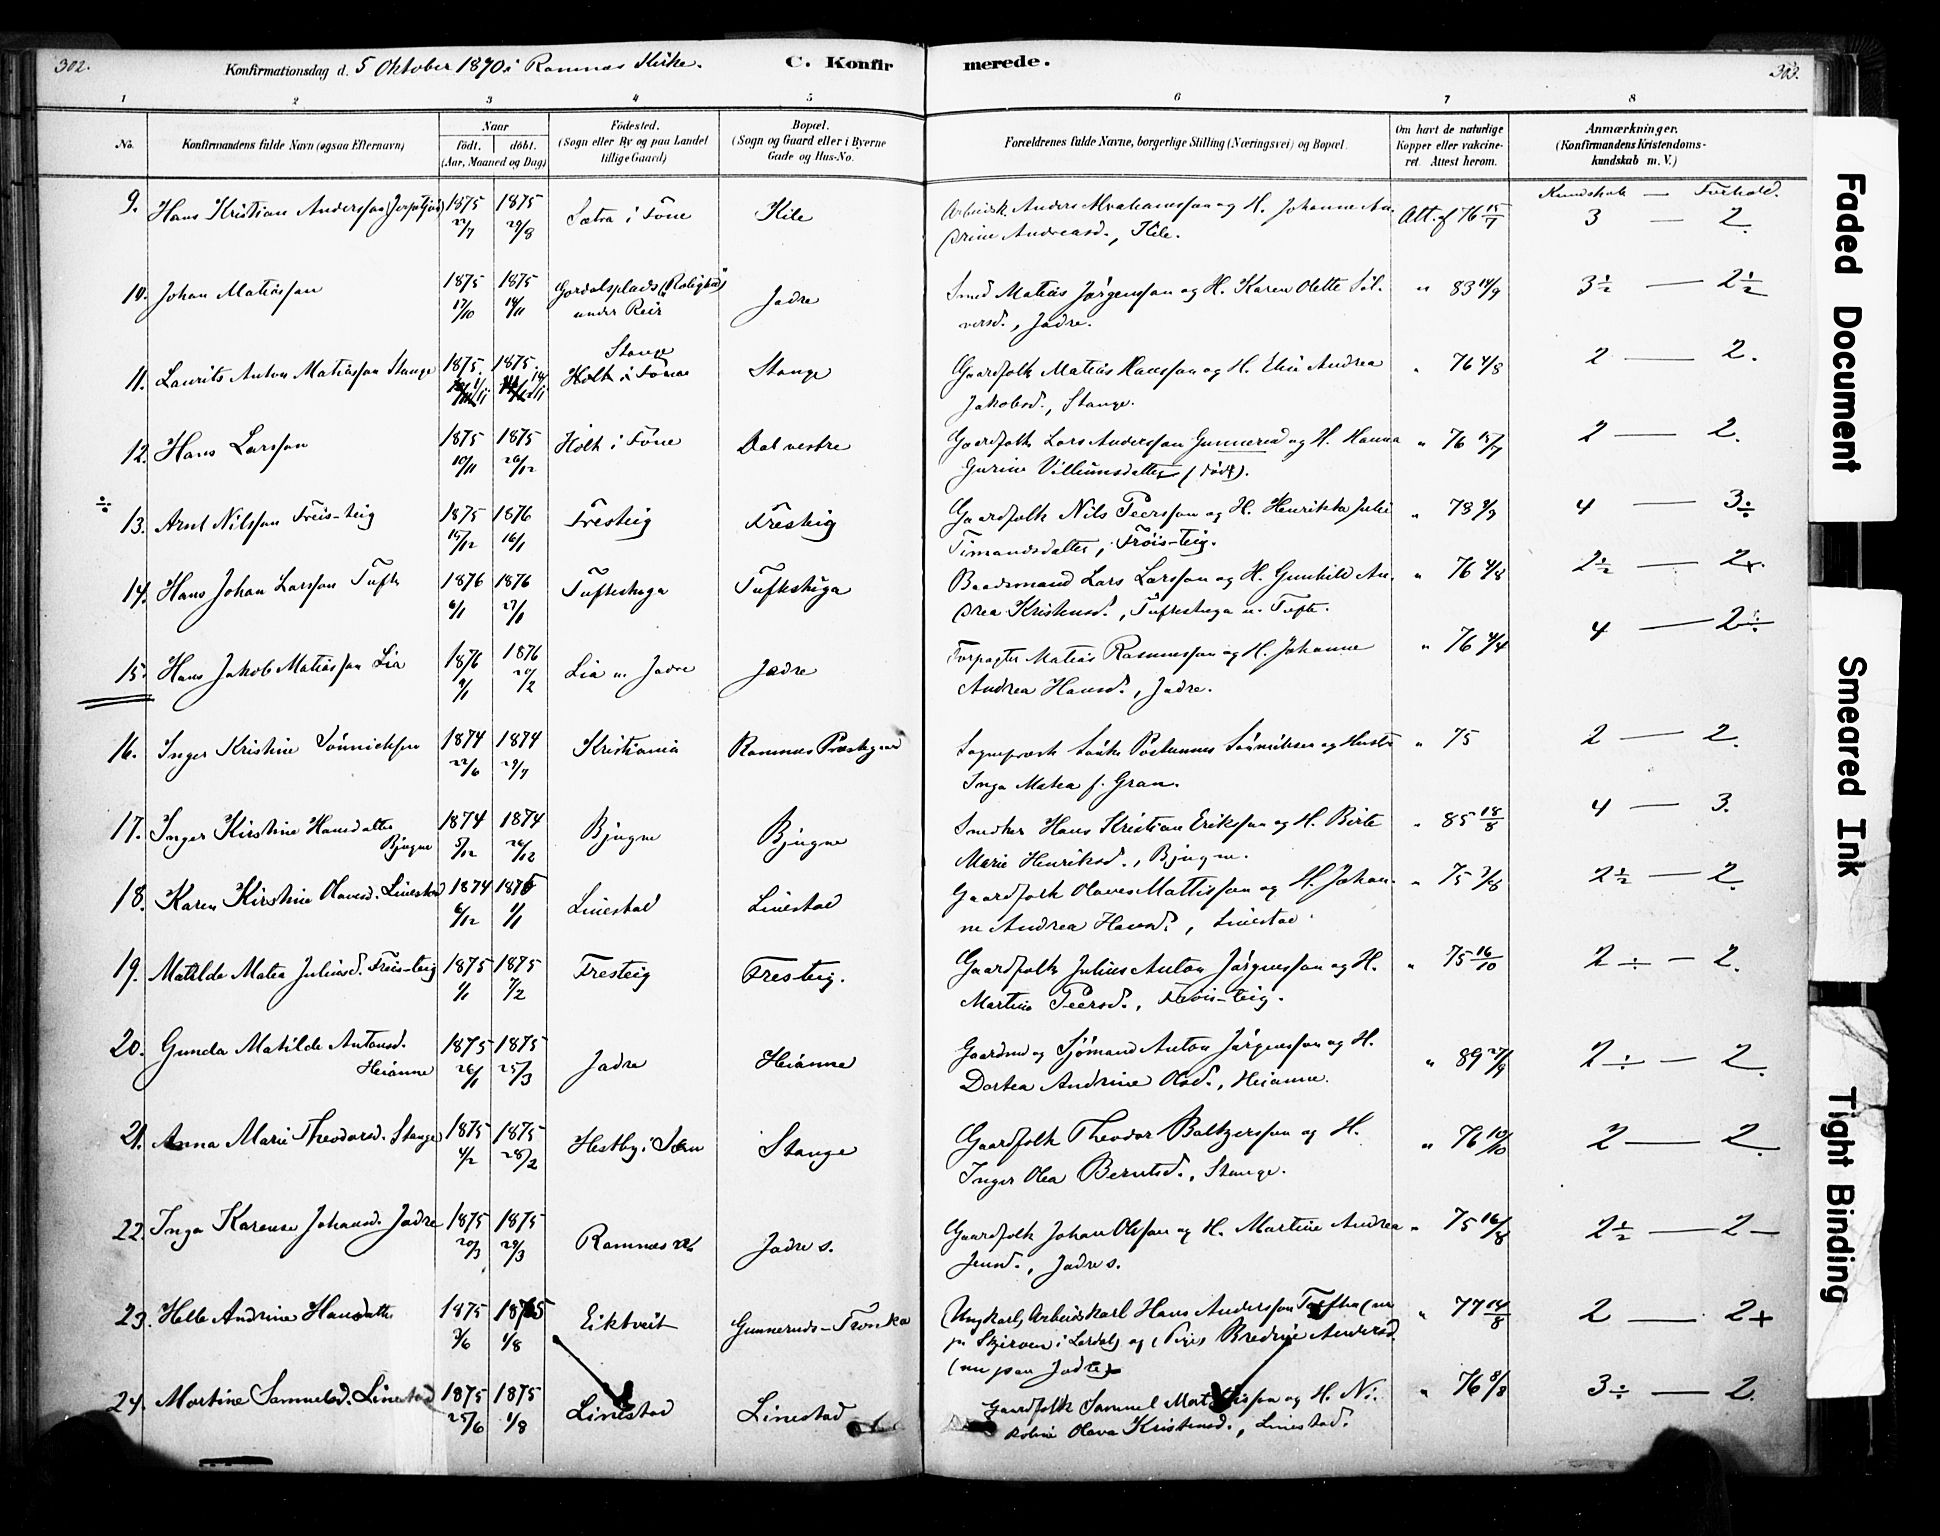 302.
Konfirmationsdag d. 5 Oktober 1890 i Ramnæs Kirke.
C. Konfirmerede.
303.
1 2 3 4 5 6 7 8
No.
Konfirmandens fulde Navn (ogsaa Efternavn)
Naar
født. døbt.
(Aar, Maaned og Dag)
Fødested.
(Sogn eller By og paa Landet
tillige Gaard)
Bopæl.
(Sogn og Gaard eller i Byerne
Gade og Hus-No.
Forældrenes fulde Navne, borgerlige Stilling (Næringsvei) og Bopæl.
Om havt de naturlige
Kopper eller vakcine-
ret. Attest herom.
Anmærkninger.
(Konfirmandens Kristendoms-
kundskab m. V.)
Kundskab — Forhold.
9. Hans Kristian Anderssøn 1875 1875 Sætra i Føne Kile Anders og H. Johanne An- Att. af 76 15/7 3 — 2.
27/7 29/8 drine Andreasd., Kile.
10. Johan Matiassøn 1875 1875 Gordalsplads (Rolighed) Jadre Smed Matias Jørgenssøn og H. Karen Olette Søl- " 83 14/9 3½ — 2½
17/10 14/11 under Reir versd., Jadre.
11. Laurits Anton Matiassøn Stange 1875. 1875. Stange Gaardfolk Matias Hanssøn og H. Elie Andrea " 76 4/8 2 — 2.
Holt i Føne Jakobsd., Stange.
12. Hans Larssøn 1875 1875 Holt i Føne Dal vestre Gaardfolk Lars Anderssøn Gunnerud og H. Hanna " 76 2 — 2.
10/11 26/12 Gurine Villumsdatter (død).
÷ 13. Arnt Nilssøn Freis-teig 1875 1876 Fresteig Fresteig Gaardfolk Nils Peerssøn og H. Henrikka Julie " 78 4 — 3÷
15/12 16/1 Timandsdatter, Frøis-teig.
14. Hans Johan Larssøn Tufte 1876 1876 Tuftestuga Tuftestuga Baadsmand Lars Larssøn og H. Gunhild An- " 76 4/8 2½ — 2+.
6/1 27/1 drea Kristensd., Tuftestuga u. Tufte.
15. Hans Jakob Matiassøn Lia 1876 1876 Lia u. Jadre Jadre Forpagter Matias Rasmussøn og H. Johanne " 76 4/4 4 — 2÷
9/1 20/2 Andrea Hansd., Jadre.
16. Inger Kristine Sønnichsen 1874 1874 Kristiania Ramnæs Præstegaard Sogneprest Sønke Postumus Sønnichsen og Hustr. " 75 2 — 2.
22/6 29/7 Inga Matea f. Gran.
17. Inger Kirstine Hansdatter 1874 1874 Bjugne Bjugne Snedker Hans Kristian Erikssøn og H. Birte " 85 18/8 4 — 3.
Bjugne 5/12 26/12 Marie Henriksd., Bjugne.
18. Karen Kirstine Olavesd. Linestad 1874 1875 Linestad Linestad Gaardfolk Olaves Mattissøn og H. Johan- " 75 2½ — 2.
6/12 1/1 ne Andrea Hansd., Linestad.
19. Matilde Matea Juliusd. Freis-teig 1875 1875 Fresteig Fresteig. Gaardfolk Julius Anton Jørgenssøn og H. " 75 16/10 2÷ — 2.
1/1 7/2 Martine Peersd., Frøis-teig.
20. Gunda Matilde Antonsd. 1875 1875 Jadre Heianne Gaardmd og Sjømand Anton Jørgenssøn og H. " 89 27/9 2÷ — 2.
Heianne 26/1 25/3 Dortea Andrine Olsd., Heianne.
21. Anna Marie Theodorsd. Stange 1875 1875 Hestby i Sæm Stange Gaardfolk Theodor Baltzerssøn og H. " 76 10/10 2 — 2.
4/2 28/2 Inger Olea Berntsd., Stange.
22. Inga Karense Johansd. Jadre 1875 1875 Ramnæs Jadre s. Gaardfolk Johan Olessøn og H. Martine Andrea " 75 16/8 2½ — 2—
20/3 29/3 Jensd., Jadre s.
23. Helle Andrine Hansdatter 1875 1875 Eiktveit Gunneruds-Trønka Ungkarl, Arbeidskarl Hans Anderssøn (nu " 77 14/8 2 — 2+
3/6 1/8 pr. Skjerven i Lardal) og Pigen Andersd.
(nu paa Jadre)
24. Martine Samuelsd. Linestad 1875 1875 Linestad Linestad Gaardfolk Samuel Matthissøn og H. Ni- " 76 8/8 3÷ — 2.
25/6 1/8 koline Olava Kristensd., Linestad.
Faded Document
Smeared Ink
Tight Binding